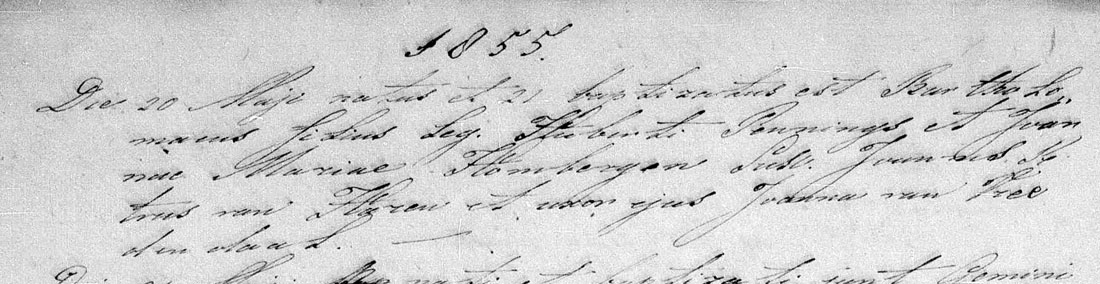 1855.
Die 20 Maji natus et 21 baptizatus est Bartholo-
maeus filius leg. Huberti Pennings et Joan
nae Mariae Hombergen Susc. Joannes Pe
trus van et uxor ejus Joanna van Vree
den daal.
Die Maji nati et baptizati sunt Gemini